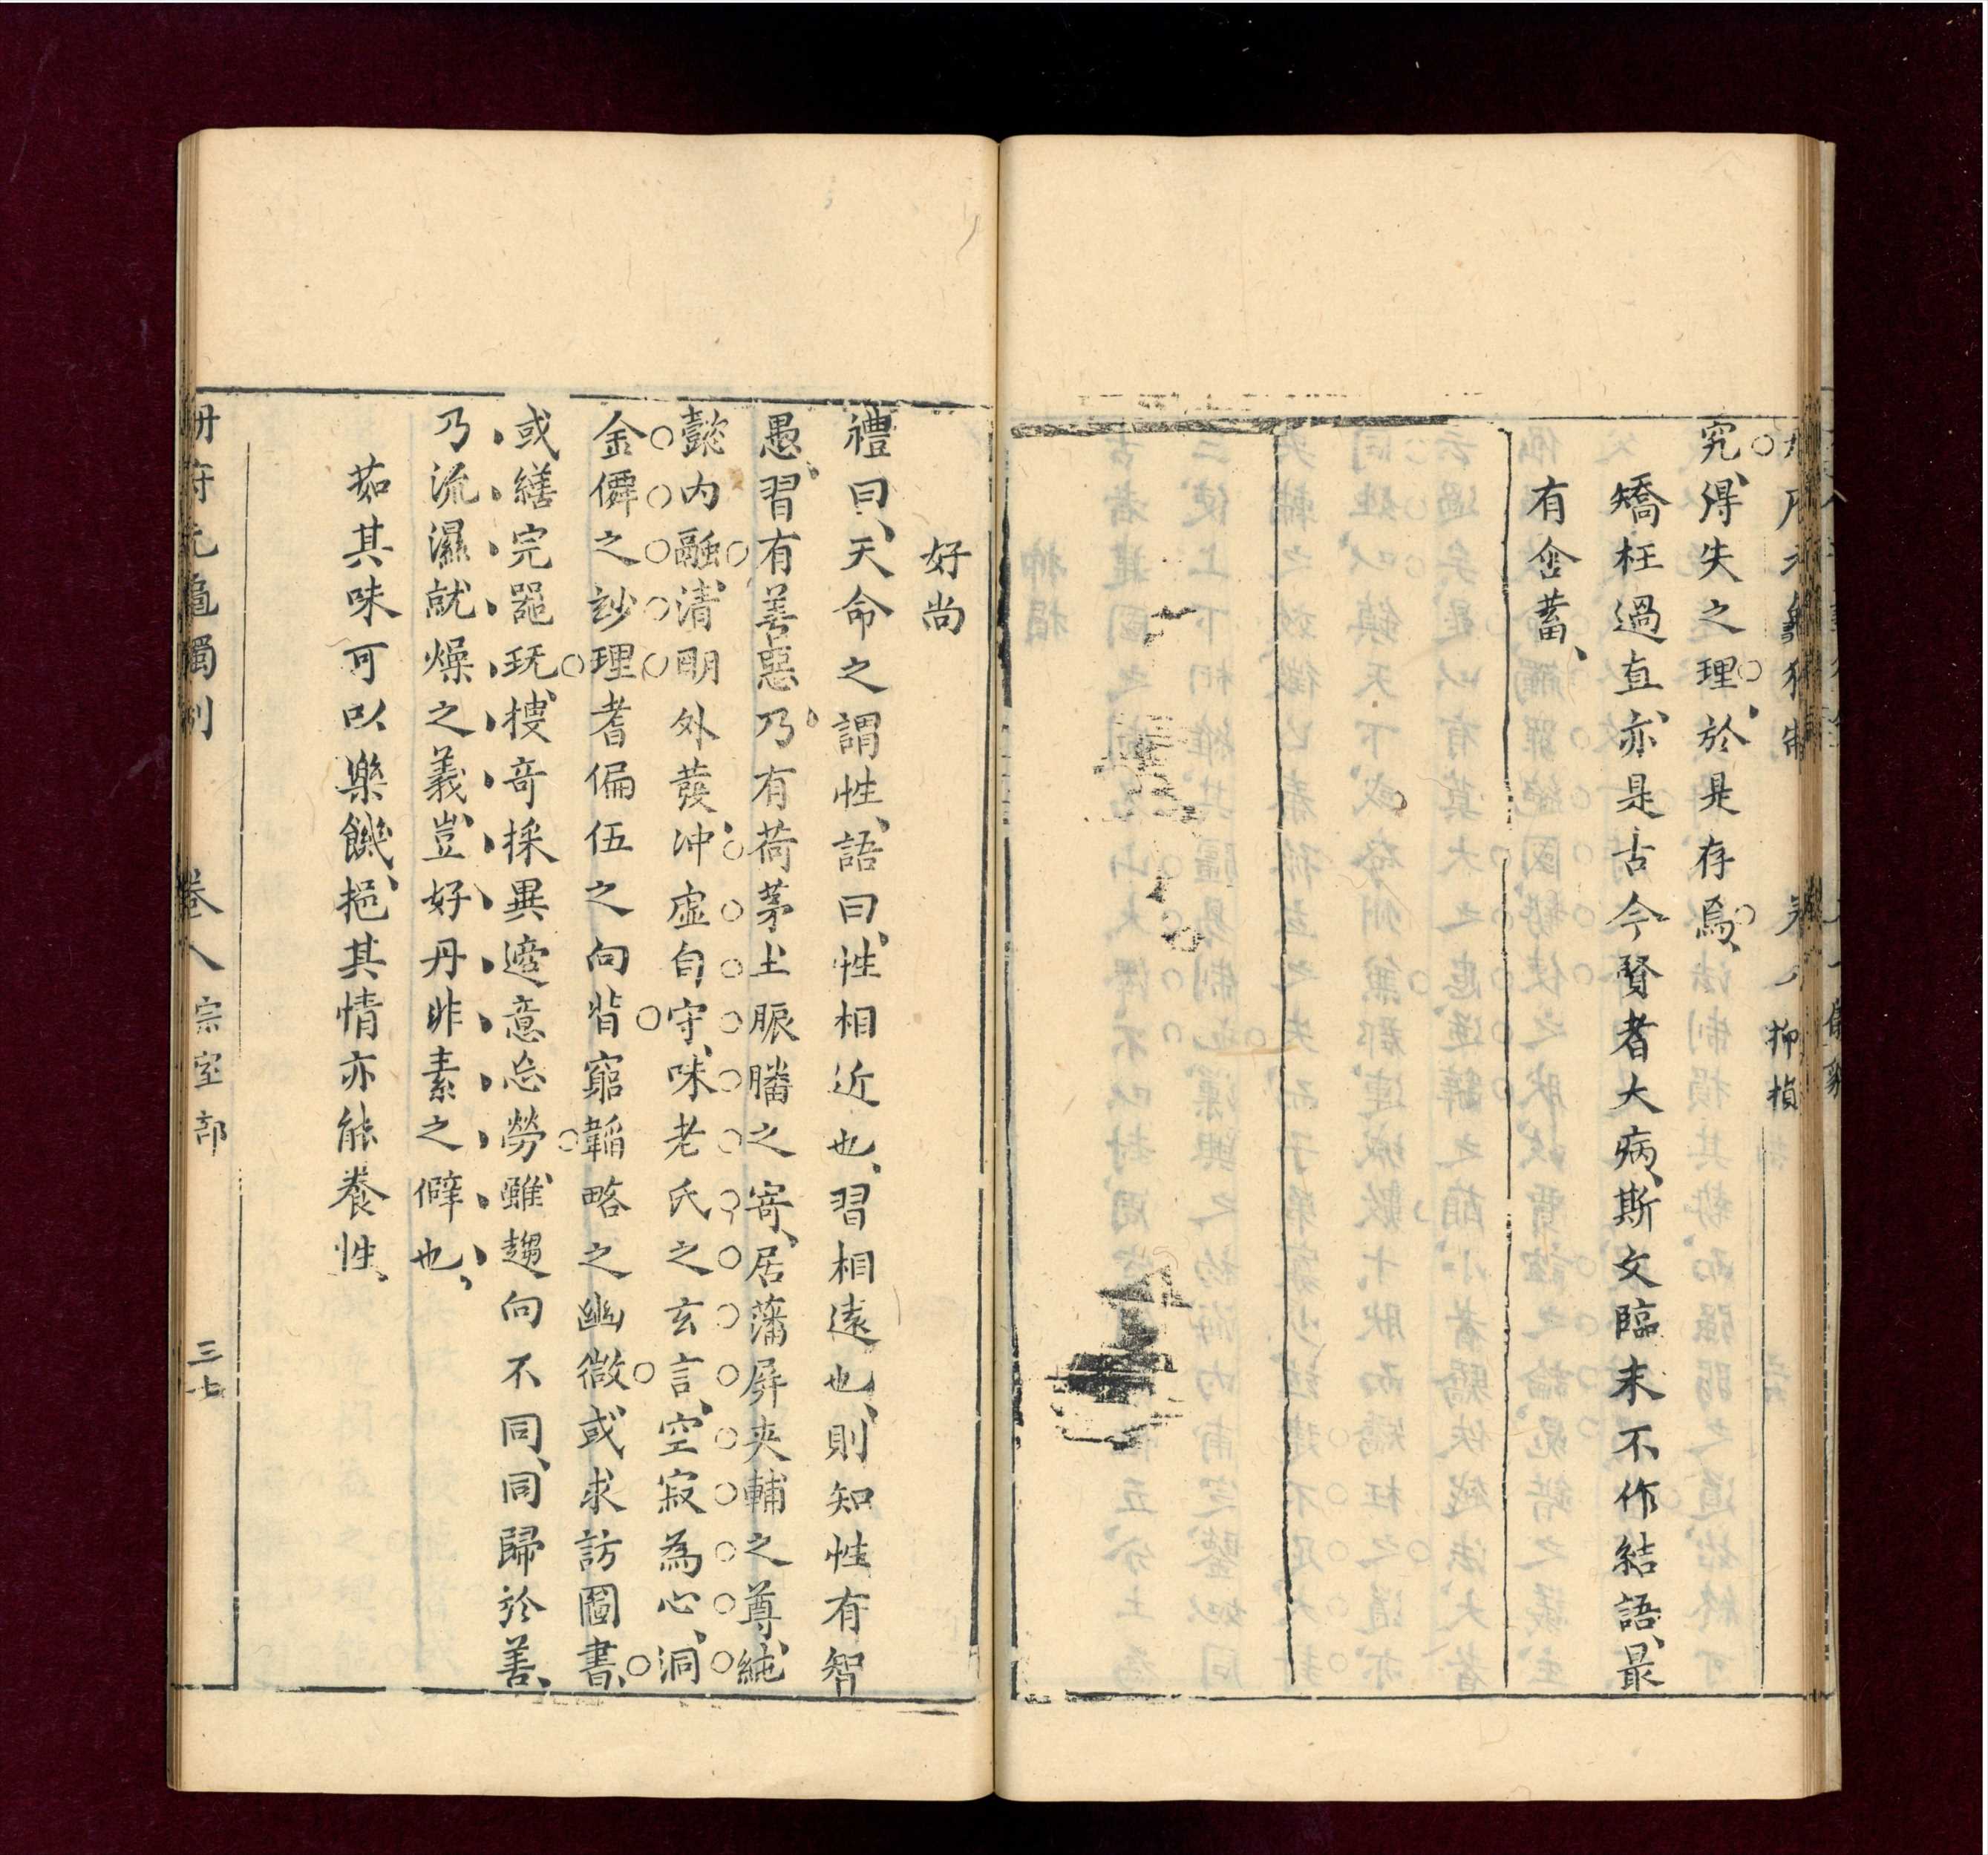 究、得失之理、於是存焉、
矯枉過直、亦是古今賢者大病、斯文臨末不作結語、最
有含蓄、
抑損
好尚
禮曰、天命之謂性、語曰、性相近也、習相遠也、則知性有智
愚、習有善惡、乃有荷茅土脤膰之寄、居藩屏夾輔之尊、純
懿內融、清明外發、冲虛自守、味老氏之玄言、空寂為心、洞
金僊之玅理、耆偏伍之向背、窮韜略之幽微、或求訪圖書、
或繕完噐玩、摟奇採異、適意忘勞、雖趨向不同、同歸於善、
乃流濕就燥之義、豈好丹非素之僻也、
茹其味可以樂饑、挹其情亦能養性、
册府元龜獨制 卷八 宗室部 三七